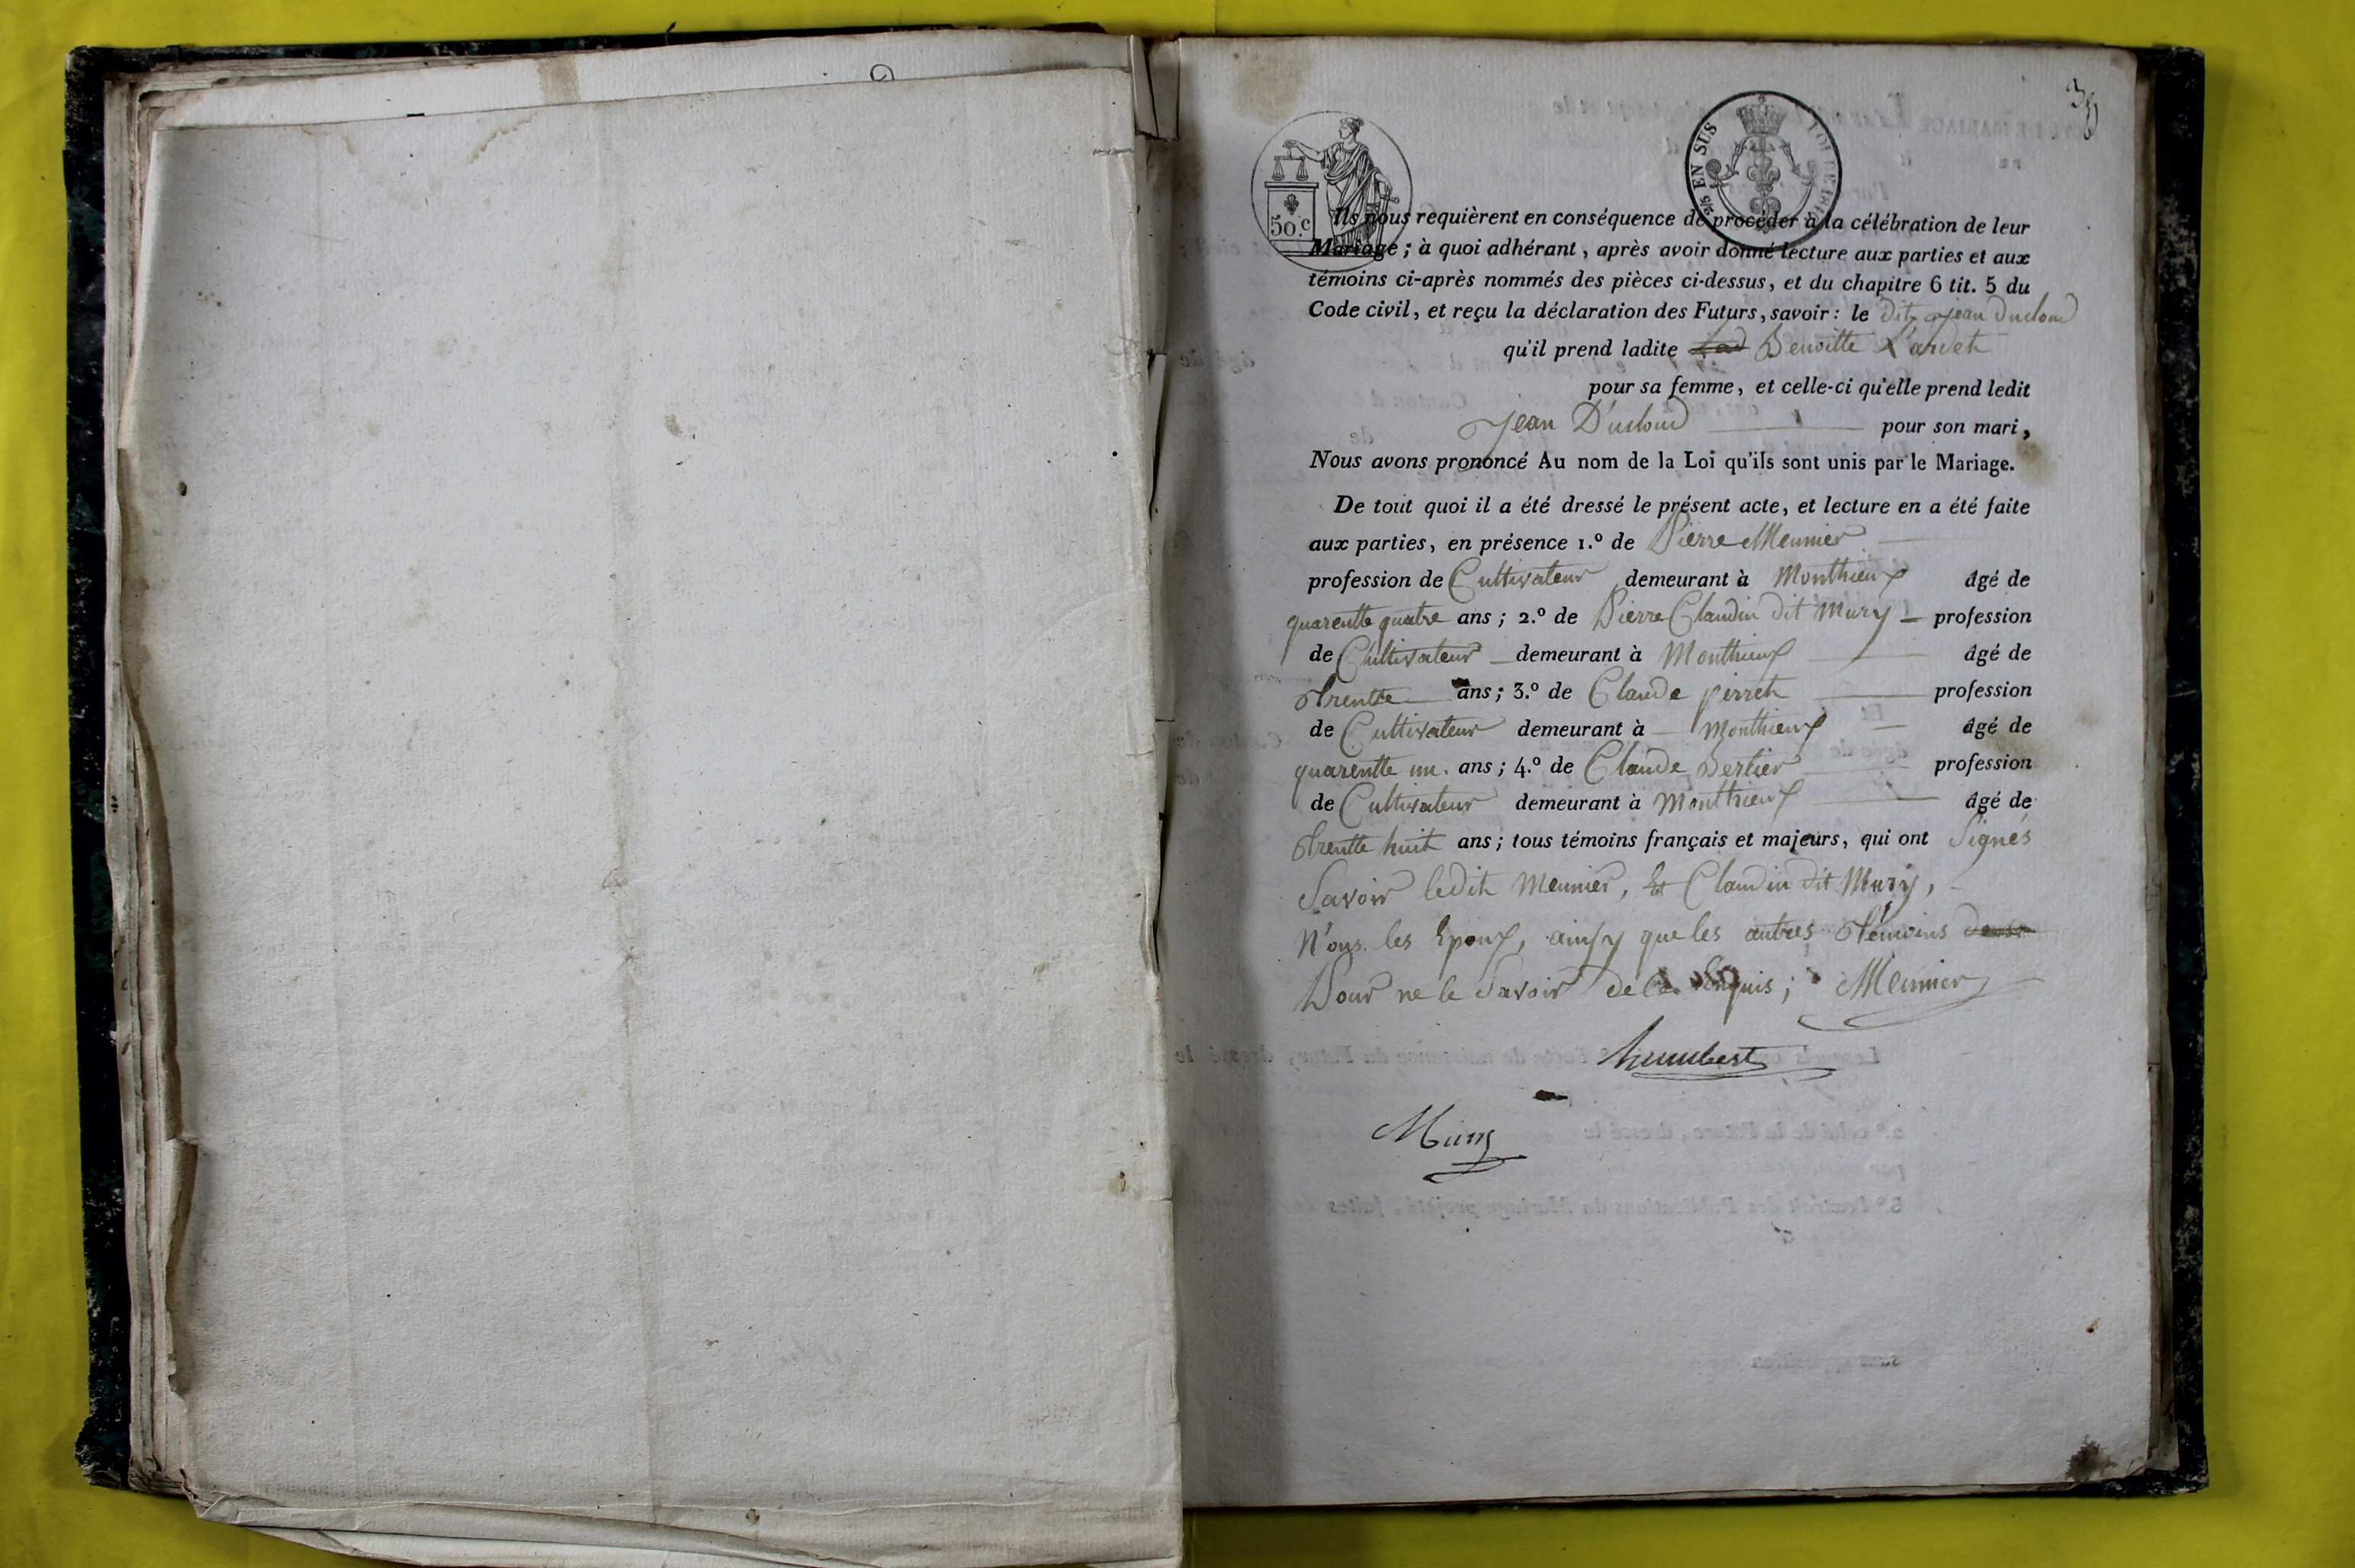 50.c
EN SUS
Ils nous requièrent en conséquence de procéder à la célébration de leur
Mariage ; à quoi adhérant , après avoir donné lecture aux parties et aux
témoins ci-après nommés des pièces ci-dessus, et du chapitre 6 tit. 5 du
Code civil, et reçu la déclaration des Futurs, savoir : le dit jean Ducloud
qu'il prend ladite Benoitte
pour sa femme, et celle-ci qu'elle prend ledit
jean Ducloud pour son mari,
Nous avons prononcé Au nom de la Loi qu'ils sont unis par le Mariage.
De tout quoi il a été dressé le présent acte, et lecture en a été faite
aux parties, en présence 1.º de Pierre Meunier
profession de Cultivateur demeurant à Monthieux âgé de
quarentte quatre ans ; 2.º de Pierre Claudin dit Mury profession
de Cultivateur demeurant à Monthieux âgé de
trentte ans ; 3.º de Claude perret profession
de Cultivateur demeurant à Monthieux âgé de
quarentte un. ans ; 4.º de Claude Berlier profession
de Cultivateur demeurant à Monthieux âgé de
trentte huit ans ; tous témoins français et majeurs, qui ont Signés
Savoir ledit Meunier, Et Claudin dit Mury,
N'ons les Epoux, ainsy que les autres témoins
Pour ne le Savoir de ce Enquis ; Meunier
humbert
Mury